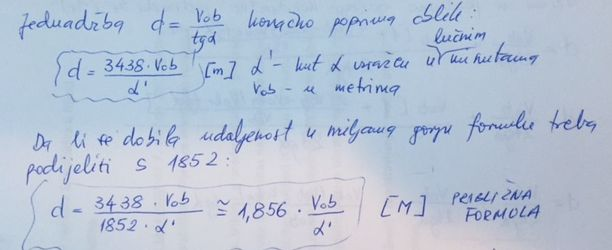 Jednadžba d = Vob / tgα konačno poprima oblik:
d = 3438 · Vob / α' [m] α' - kut α izražen u lučnim minutama
Vob - u metrima
Da bi se dobila udaljenost u miljama gornju formulu treba
podijeliti s 1852:
d = 3438 · Vob / 1852 · α' ≅ 1,856 · Vob / α' [M] PRIBLIŽNA
FORMULA